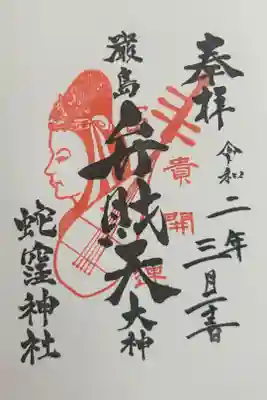 奉拝
令和二年三月
巌島
弁財天
大神
貴開
蛇窪神社